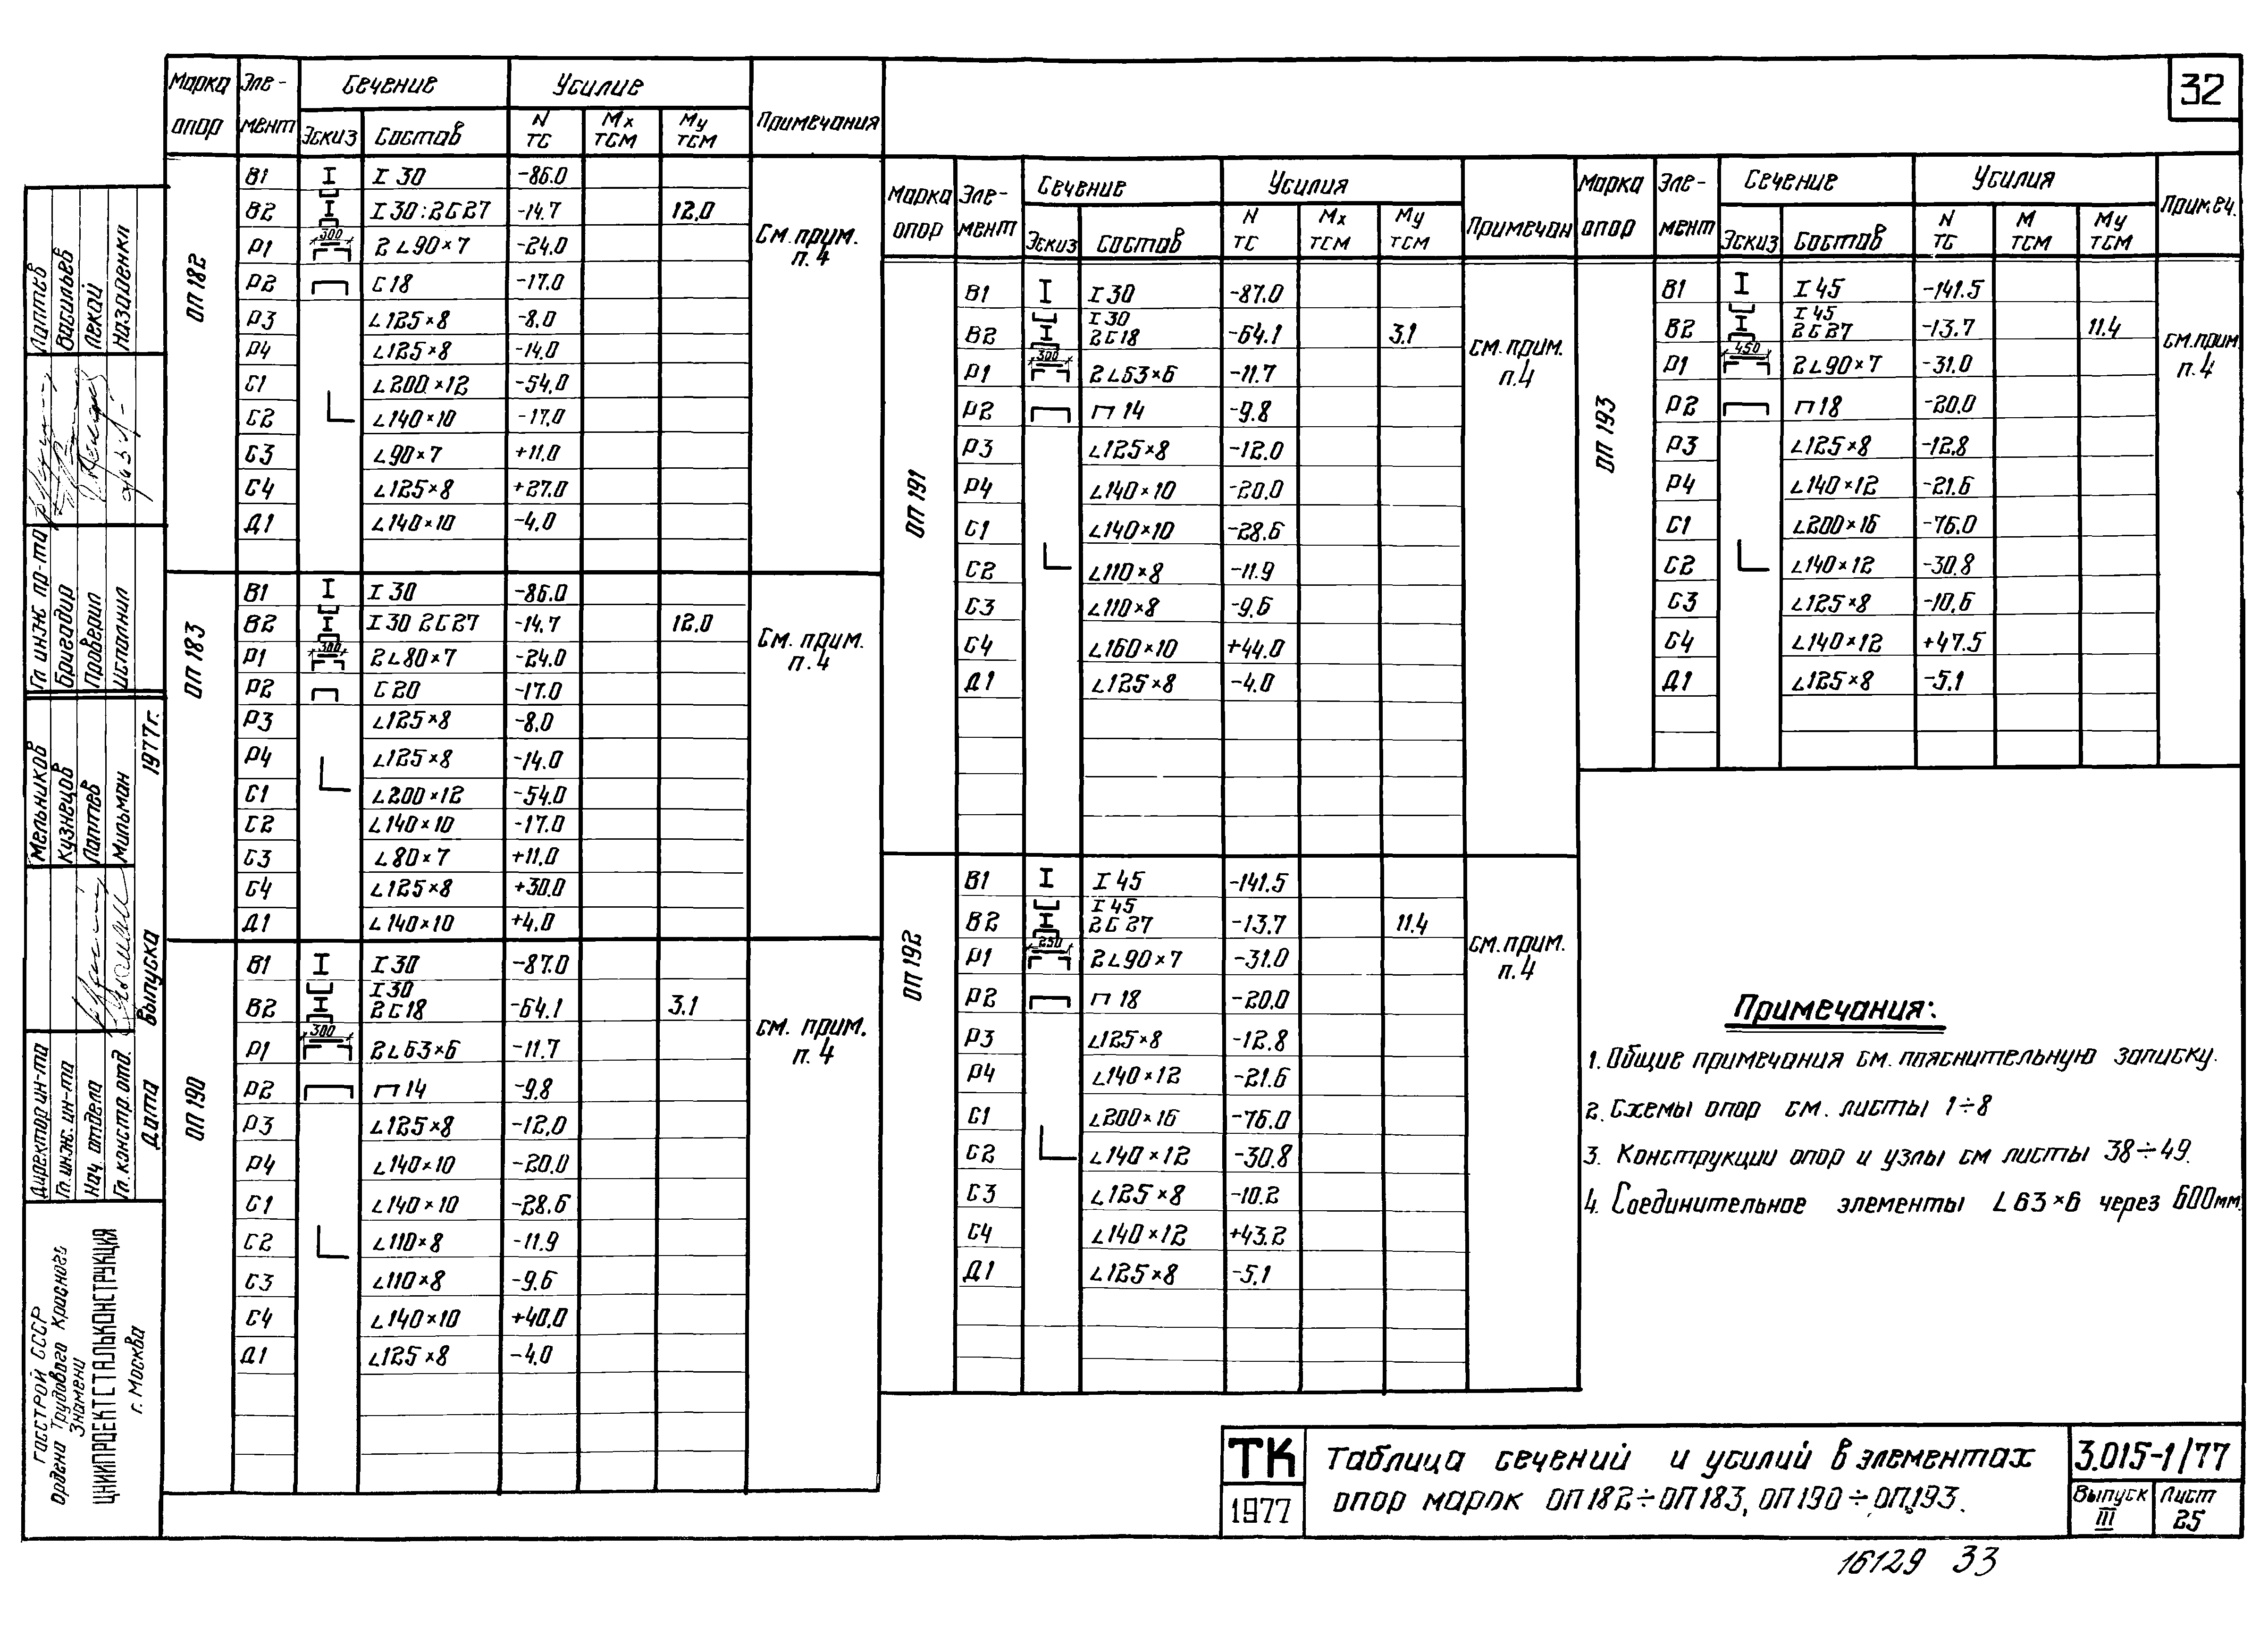 32
Марка опор | Элемент | Сечение | Усилие | Примечания
Эскиз | Состав | N тс | Mx тсм | My тсм
ОП 182
В1 | I 30 | -86.0
В2 | I 30:2С27 | -14.7 | 12.0
Р1 | 300 | 2L90×7 | -24.0
Р2 | С18 | -17.0
Р3 | L125×8 | -8.0
Р4 | L125×8 | -14.0
С1 | L200×12 | -54.0
С2 | L140×10 | -17.0
С3 | L90×7 | +11.0
С4 | L125×8 | +27.0
Д1 | L140×10 | -4.0
См. прим. п. 4
ОП 183
В1 | I 30 | -86.0
В2 | I 30 2С27 | -14.7 | 12.0
Р1 | 300 | 2L80×7 | -24.0
Р2 | С20 | -17.0
Р3 | L125×8 | -8.0
Р4 | L125×8 | -14.0
С1 | L200×12 | -54.0
С2 | L140×10 | -17.0
С3 | L80×7 | +11.0
С4 | L125×8 | +30.0
Д1 | L140×10 | +4.0
См. прим. п. 4
ОП 190
В1 | I 30 | -87.0
В2 | I 30 2С18 | -64.1 | 3.1
Р1 | 300 | 2L63×6 | -11.7
Р2 | П 14 | -9.8
Р3 | L125×8 | -12.0
Р4 | L140×10 | -20.0
С1 | L140×10 | -28.6
С2 | L110×8 | -11.9
С3 | L110×8 | -9.6
С4 | L140×10 | +40.0
Д1 | L125×8 | -4.0
см. прим. п. 4
Марка опор | Элемент | Сечение | Усилия | Примечан
Эскиз | Состав | N тс | Mx тсм | My тсм
ОП 191
В1 | I 30 | -87.0
В2 | I 30 2С18 | -64.1 | 3.1
Р1 | 300 | 2L63×6 | -11.7
Р2 | П 14 | -9.8
Р3 | L125×8 | -12.0
Р4 | L140×10 | -20.0
С1 | L140×10 | -28.6
С2 | L110×8 | -11.9
С3 | L110×8 | -9.6
С4 | L160×10 | +44.0
Д1 | L125×8 | -4.0
см. прим. п.4
ОП 192
В1 | I 45 | -141.5
В2 | I 45 2С27 | -13.7 | 11.4
Р1 | 250 | 2L90×7 | -31.0
Р2 | П 18 | -20.0
Р3 | L125×8 | -12.8
Р4 | L140×12 | -21.6
С1 | L200×16 | -76.0
С2 | L140×12 | -30.8
С3 | L125×8 | -10.2
С4 | L140×12 | +43.2
Д1 | L125×8 | -5.1
см. прим. п. 4
Марка опор | Элемент | Сечение | Усилия | Примеч.
Эскиз | Состав | N тс | M тсм | My тсм
ОП 193
В1 | I 45 | -141.5
В2 | I 45 2С27 | -13.7 | 11.4
Р1 | 450 | 2L90×7 | -31.0
Р2 | П 18 | -20.0
Р3 | L125×8 | -12.8
Р4 | L140×12 | -21.6
С1 | L200×16 | -76.0
С2 | L140×12 | -30.8
С3 | L125×8 | -10.6
С4 | L140×12 | +47.5
Д1 | L125×8 | -5.1
см. прим п. 4
Примечания:
1. Общие примечания см. пояснительную записку.
2. Схемы опор см. листы 1÷8
3. Конструкции опор и узлы см листы 38÷49.
4. Соединительное элементы L 63×6 через 600мм.
ТК
1977
Таблица сечений и усилий в элементах
опор марок ОП182÷ОП183, ОП190÷ОП193.
3.015-1/77
Выпуск III
Лист 25
16129 33
Гл инж пр-та Лаптев
Бригадир Васильев
Проверил Лекай
Исполнил Назаренко
Директор ин-та Мельников
Гл. инж. ин-та Кузнецов
Нач. отдела Лаптев
Гл. констр. отд. Мильман
Дата выпуска 1977г.
ГОССТРОЙ СССР
Ордена Трудового Красного
Знамени
ЦНИИПРОЕКТСТАЛЬКОНСТРУКЦИЯ
г. Москва